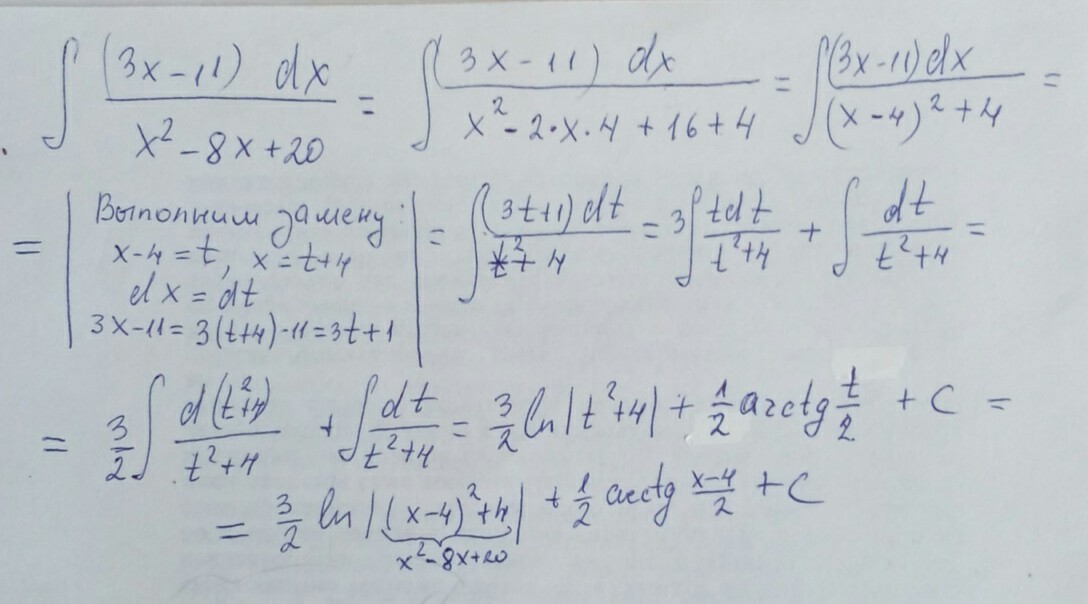 ∫ (3x-11) dx / x²-8x+20 = ∫ (3x-11) dx / x²-2·x·4+16+4 = ∫ (3x-11)dx / (x-4)²+4 =
= | Выполним замену: x-4=t, x=t+4 dx=dt 3x-11=3(t+4)-11=3t+1 | = ∫ (3t+1)dt / t²+4 = 3∫ tdt / t²+4 + ∫ dt / t²+4 =
= 3/2 ∫ d(t²+4) / t²+4 + ∫ dt / t²+4 = 3/2 ln|t²+4| + 1/2 arctg t/2 + C =
= 3/2 ln|(x-4)²+4| + 1/2 arctg x-4/2 + C
x²-8x+20